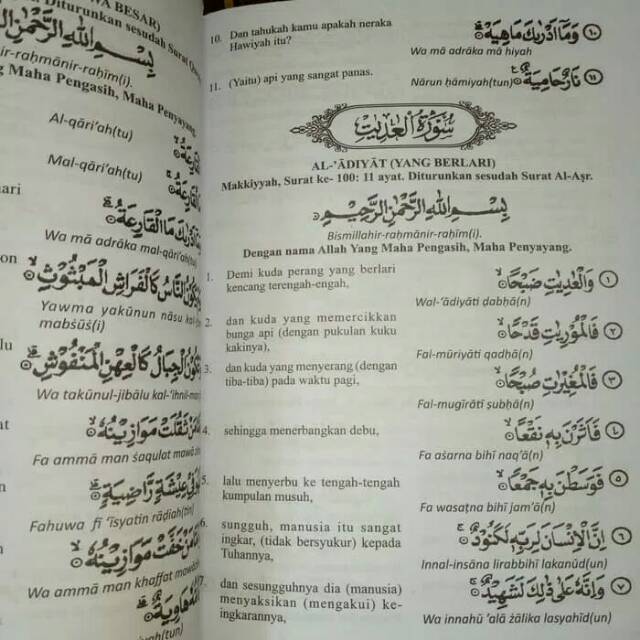 WA BESAR)
Diturunkan sesudah Surat
بِسْمِ اللهِ الرَّحْمٰنِ الرَّحِيْمِ
ir-raḥmānir-raḥīm(i).
Maha Pengasih, Maha Penyayang.
Al-qāri'ah(tu)
اَلْقَارِعَةُ
Mal-qāri'ah(tu)
مَا الْقَارِعَةُ
مَا الْقَارِعَةُ
Wa mā adrāka mal-qāri'ah(tu)
يَكُوْنُ النَّاسُ كَالْفَرَاشِ الْمَبْثُوْثِ
Yawma yakūnun nāsu
mabṡūṡ(i)
الْجِبَالُ كَالْعِهْنِ الْمَنْفُوْشِ
Wa takūnul-jibālu kal-'ihnil-
مَنْ ثَقُلَتْ مَوَازِيْنُهٗ
Fa ammā man ṡaqulat
عِيْشَةٍ رَّاضِيَةٍ
Fahuwa fī 'īsyatin rāḍiah(tin)
مَنْ خَفَّتْ مَوَازِيْنُهٗ
Wa ammā man khaffat
هَاوِيَةٌ
10. Dan tahukah kamu apakah neraka Hawiyah itu?
وَمَآ اَدْرٰىكَ مَاهِيَهْ ۱۰
Wa mā adrāka mā hiyah
11. (Yaitu) api yang sangat panas.
نَارٌ حَامِيَةٌ ۱۱
Nārun ḥāmiyah(tun)
سُوْرَةُ الْعٰدِيٰتِ
AL-'ĀDIYĀT (YANG BERLARI)
Makkiyyah, Surat ke- 100: 11 ayat. Diturunkan sesudah Surat Al-Aṣr.
بِسْمِ اللهِ الرَّحْمٰنِ الرَّحِيْمِ
Bismillahir-raḥmānir-raḥīm(i).
Dengan nama Allah Yang Maha Pengasih, Maha Penyayang.
1. Demi kuda perang yang berlari
kencang terengah-engah,
وَالْعٰدِيٰتِ ضَبْحًا ۱
Wal-'ādiyāti ḍabḥā(n)
2. dan kuda yang memercikkan
bunga api (dengan pukulan kuku
kakinya),
فَالْمُوْرِيٰتِ قَدْحًا ۲
Fal-mūriyāti qadḥā(n)
3. dan kuda yang menyerang (dengan
tiba-tiba) pada waktu pagi,
فَالْمُغِيْرٰتِ صُبْحًا ۳
Fal-mugīrāti ṣubḥā(n)
4. sehingga menerbangkan debu,
فَاَثَرْنَ بِهٖ نَقْعًا ٤
Fa aṡarna bihī naq'ā(n)
5. lalu menyerbu ke tengah-tengah
kumpulan musuh,
فَوَسَطْنَ بِهٖ جَمْعًا ٥
Fa wasaṭna bihī jam'ā(n)
6. sungguh, manusia itu sangat
ingkar, (tidak bersyukur) kepada
Tuhannya,
اِنَّ الْاِنْسَانَ لِرَبِّهٖ لَكَنُوْدٌ ٦
Innal-insāna lirabbihī lakanūd(un)
7. dan sesungguhnya dia (manusia)
menyaksikan (mengakui) ke-
ingkarannya,
وَاِنَّهٗ عَلٰى ذٰلِكَ لَشَهِيْدٌ ٧
Wa innahū 'alā żālika lasyahīd(un)